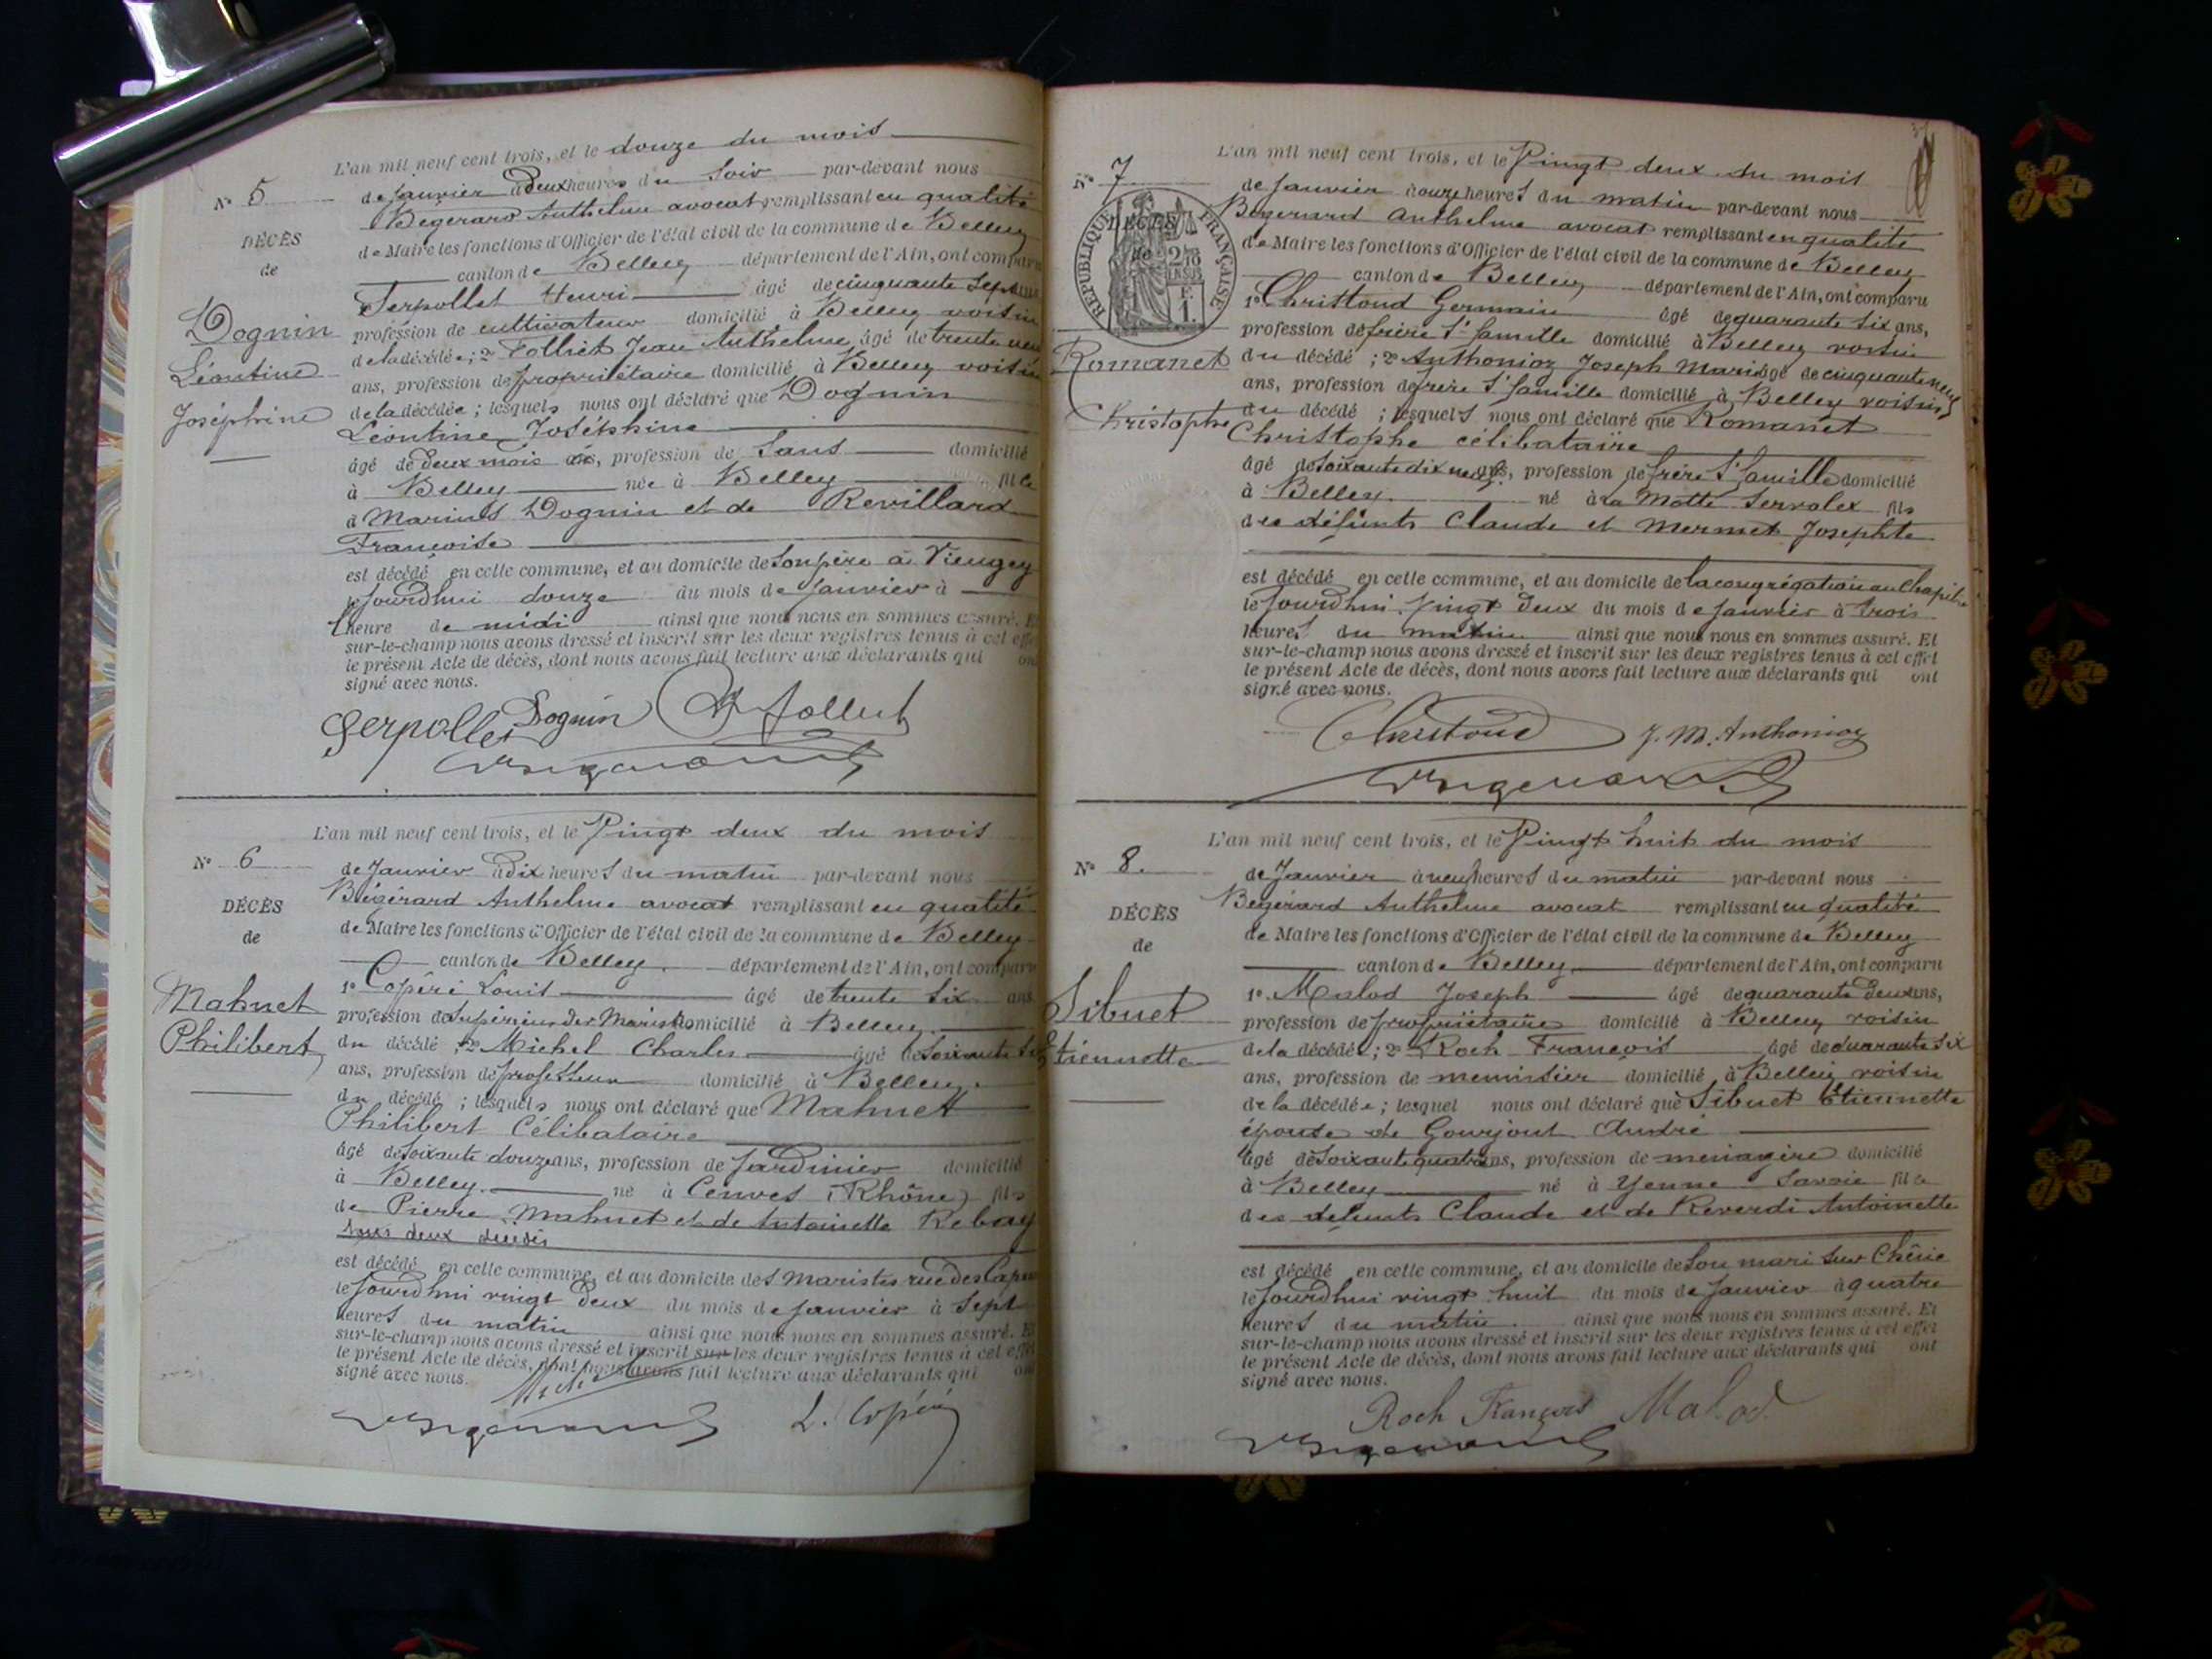 L'an mil neuf cent trois, et le douze du mois
N° 5
de Janvier à deux heures du Soir par-devant nous
Bégérard Anthelme avocat remplissant en qualité
DÉCÈS
de Maire les fonctions d'Officier de l'état civil de la commune de Belley
de
canton de Belley département de l'Ain, ont comparu
Serpollet Henri âgé de cinquante Sept ans
Dognin
profession de cultivateur domicilié à Belley voisin
de la décédée; 2° Folliet Jean Anthelme âgé de trente neuf
Léontine
ans, profession de propriétaire domicilié à Belley voisin
Joséphine
de la décédée; lesquels nous ont déclaré que Dognin
Léontine Joséphine
âgé de deux mois, profession de Sans domicilié
à Belley née à Belley fille
à Marius Dognin et de Revillard
Françoise
est décédé en cette commune, et au domicile de Son père à Vieugey
le Jourdhui douze du mois de Janvier à
1 heure de midi ainsi que nous nous en sommes assuré. Et
sur-le-champ nous avons dressé et inscrit sur les deux registres tenus à cet effet
le présent Acte de décès, dont nous avons fait lecture aux déclarants qui ont
signé avec nous.
Serpollet Dognin Folliet
L'an mil neuf cent trois, et le Vingt deux du mois
N° 6
de Janvier à dix heures du matin par-devant nous
Bégérard Anthelme avocat remplissant en qualité
DÉCÈS
de Maire les fonctions d'Officier de l'état civil de la commune de Belley
de
canton de Belley département de l'Ain, ont comparu
1° Copéré Louis âgé de trente Six ans
Mahuet
profession de Supérieur des Maristes domicilié à Belley
Philibert
du décédé; 2° Michel Charles âgé de Soixante
ans, profession de professeur domicilié à Belley
du décédé; lesquels nous ont déclaré que Mahuet
Philibert Célibataire
âgé de Soixante douze ans, profession de Jardinier domicilié
à Belley né à Cenves (Rhône) fils
de Pierre Mahuet et de Antoinette Rebay
tous deux décédés
est décédé en cette commune, et au domicile des Maristes rue des
le Jourdhui vingt deux du mois de Janvier à Sept
heures du matin ainsi que nous nous en sommes assuré. Et
sur-le-champ nous avons dressé et inscrit sur les deux registres tenus à cet effet
le présent Acte de décès, dont nous avons fait lecture aux déclarants qui ont
signé avec nous.
Michel
L. Copéré
L'an mil neuf cent trois, et le Vingt deux du mois
N° 7
de Janvier à onze heures du matin par-devant nous
Bégérard Anthelme avocat remplissant en qualité
DÉCÈS
de
RÉPUBLIQUE FRANÇAISE
de Maire les fonctions d'Officier de l'état civil de la commune de Belley
canton de Belley département de l'Ain, ont comparu
1° Christoud Germain âgé de quarante Six ans,
profession de frère Ste famille domicilié à Belley voisin
Romanet
du décédé; 2° Anthonioz Joseph Marie âgé de cinquante neuf
ans, profession de frère Ste famille domicilié à Belley voisin
Christophe
du décédé; lesquels nous ont déclaré que Romanet
Christophe célibataire
âgé de Soixante dix neuf ans, profession de frère Ste famille domicilié
à Belley né à La Motte Servolex fils
des défunts Claude et Mermet Josephte
est décédé en cette commune, et au domicile de la congrégation au Chapitre
le Jourdhui Vingt deux du mois de Janvier à trois
heures du matin ainsi que nous nous en sommes assuré. Et
sur-le-champ nous avons dressé et inscrit sur les deux registres tenus à cet effet
le présent Acte de décès, dont nous avons fait lecture aux déclarants qui ont
signé avec nous.
Christoud J. M. Anthonioz
L'an mil neuf cent trois, et le Vingt huit du mois
N° 8.
de Janvier à neuf heures du matin par-devant nous
Bégérard Anthelme avocat remplissant en qualité
DÉCÈS
de Maire les fonctions d'Officier de l'état civil de la commune de Belley
de
canton de Belley département de l'Ain, ont comparu
1° Malod Joseph âgé de quarante deux ans,
Sibuet
profession de propriétaire domicilié à Belley voisin
Etiennette
de la décédée; 2° Roch François âgé de quarante Six
ans, profession de menuisier domicilié à Belley voisin
de la décédée; lesquel nous ont déclaré que Sibuet Etiennette
épouse de Gourjout André
âgé de Soixante quatre ans, profession de ménagère domicilié
à Belley né à Yenne Savoie fille
des défunts Claude et de Reverdi Antoinette
est décédé en cette commune, et au domicile de Son mari Sur Chêne
le Jourdhui vingt huit du mois de Janvier à quatre
heures du matin. ainsi que nous nous en sommes assuré. Et
sur-le-champ nous avons dressé et inscrit sur les deux registres tenus à cet effet
le présent Acte de décès, dont nous avons fait lecture aux déclarants qui ont
signé avec nous.
Roch François Malod